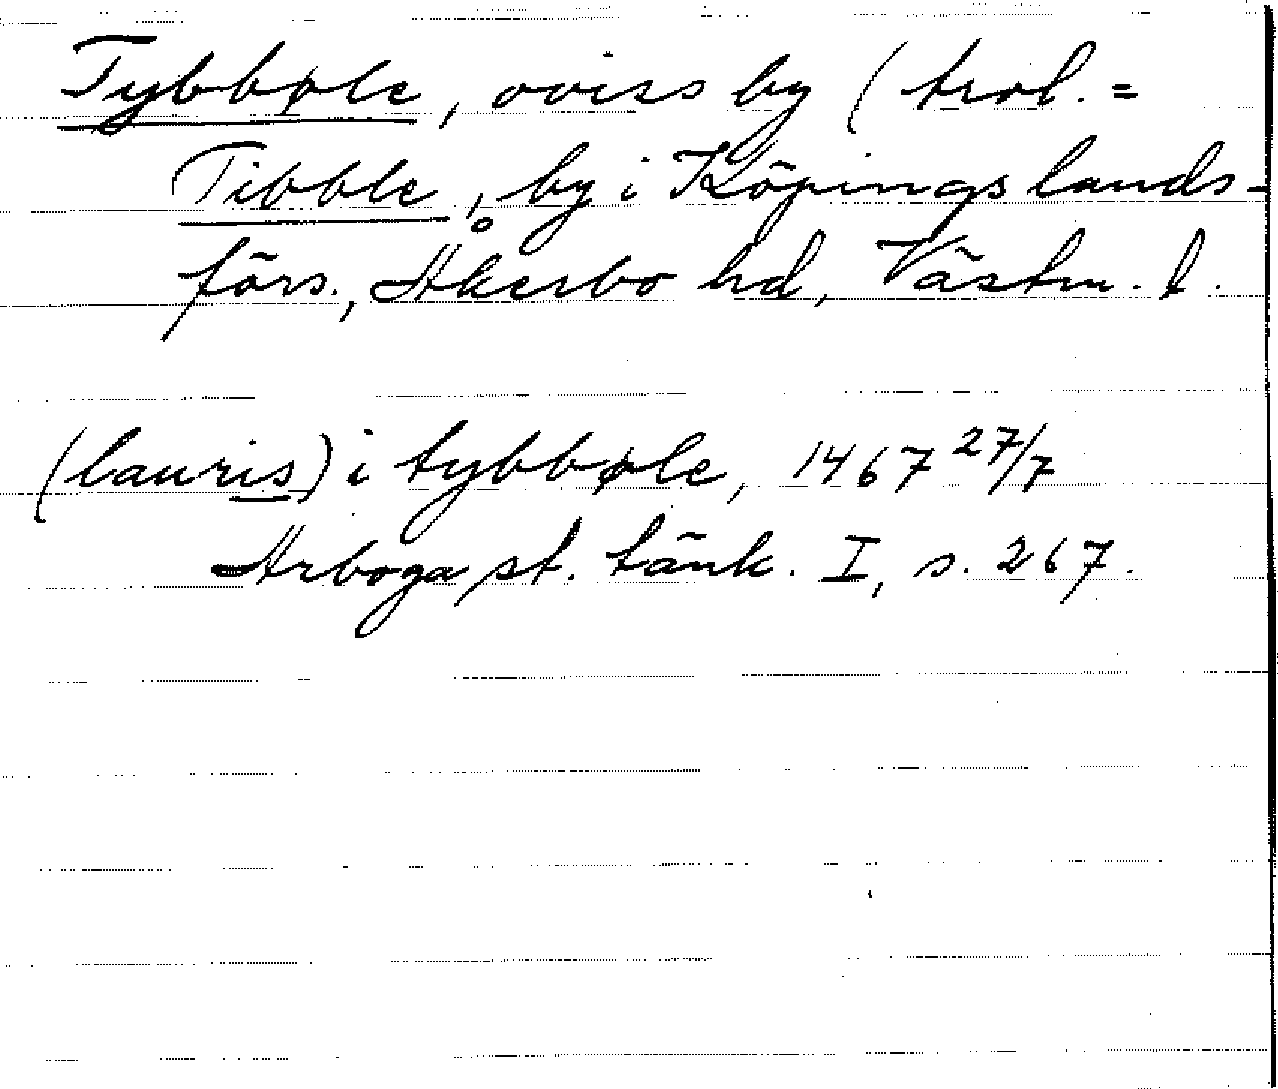 Tybbøle, oviss by (trol. =
Tibble, by i Köpings lands-
förs., Åkerbo hd, Västm. l.
(lauris) i tybbøle, 1467 27/7
Arboga st. tänk. I, s. 267.